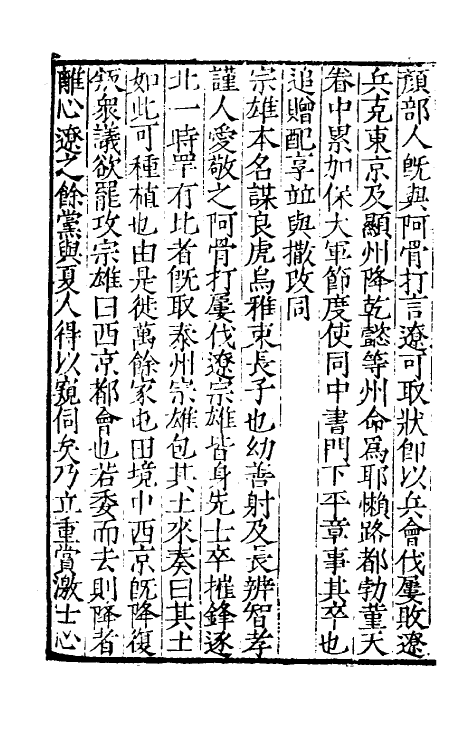 顔部人既與阿骨打言遼可取狀即以兵會伐屢敗遼
兵克東京及顯州降乾懿等州命爲耶懶路都勃菫天
眷中累加保大軍節度使同中書門下平章事其卒也
追贈配享並與撒改同
宗雄本名謀良虎烏雅束長子也幼善射及長辨智孝
謹人愛敬之阿骨打屢伐遼宗雄皆身先士卒摧鋒逐
北一時罕有比者旣取泰州宗雄包其土來奏曰其土
如此可種植也由是徙萬餘家屯田境中西京旣降復
叛衆議欲罷攻宗雄曰西京都會也若委而去則降者
離心遼之餘黨與夏人得以窺伺矣乃立重賞激士心